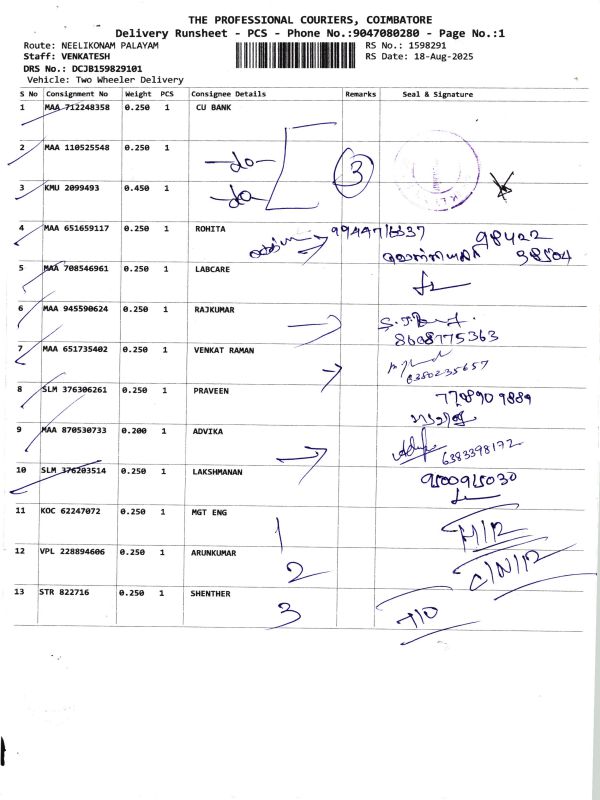 THE PROFESSIONAL COURIERS, COIMBATORE
Delivery Runsheet - PCS - Phone No.:9047080280 - Page No.:1
Route: NEELIKONAM PALAYAM
RS No.: 1598291
Staff: VENKATESH
RS Date: 18-Aug-2025
DRS No.: DCJB159829101
Vehicle: Two Wheeler Delivery
S No Consignment No Weight PCS Consignee Details Remarks Seal & Signature
1 MAA 712248358 0.250 1 CU BANK
2 MAA 110525548 0.250 1 -do- 3
3 KMU 2099493 0.450 1 -do-
4 MAA 651659117 0.250 1 ROHITA 98422
38504
5 MAA 708546961 0.250 1 LABCARE
6 MAA 945590624 0.250 1 RAJKUMAR
8608775363
7 MAA 651735402 0.250 1 VENKAT RAMAN
6380235657
8 SLM 376306261 0.250 1 PRAVEEN 7708909889
9 MAA 870530733 0.200 1 ADVIKA 6383398172
10 SLM 376203514 0.250 1 LAKSHMANAN
11 KOC 62247072 0.250 1 MGT ENG 1
12 VPL 228894606 0.250 1 ARUNKUMAR 2 C/N/R
13 STR 822716 0.250 1 SHENTHER 3